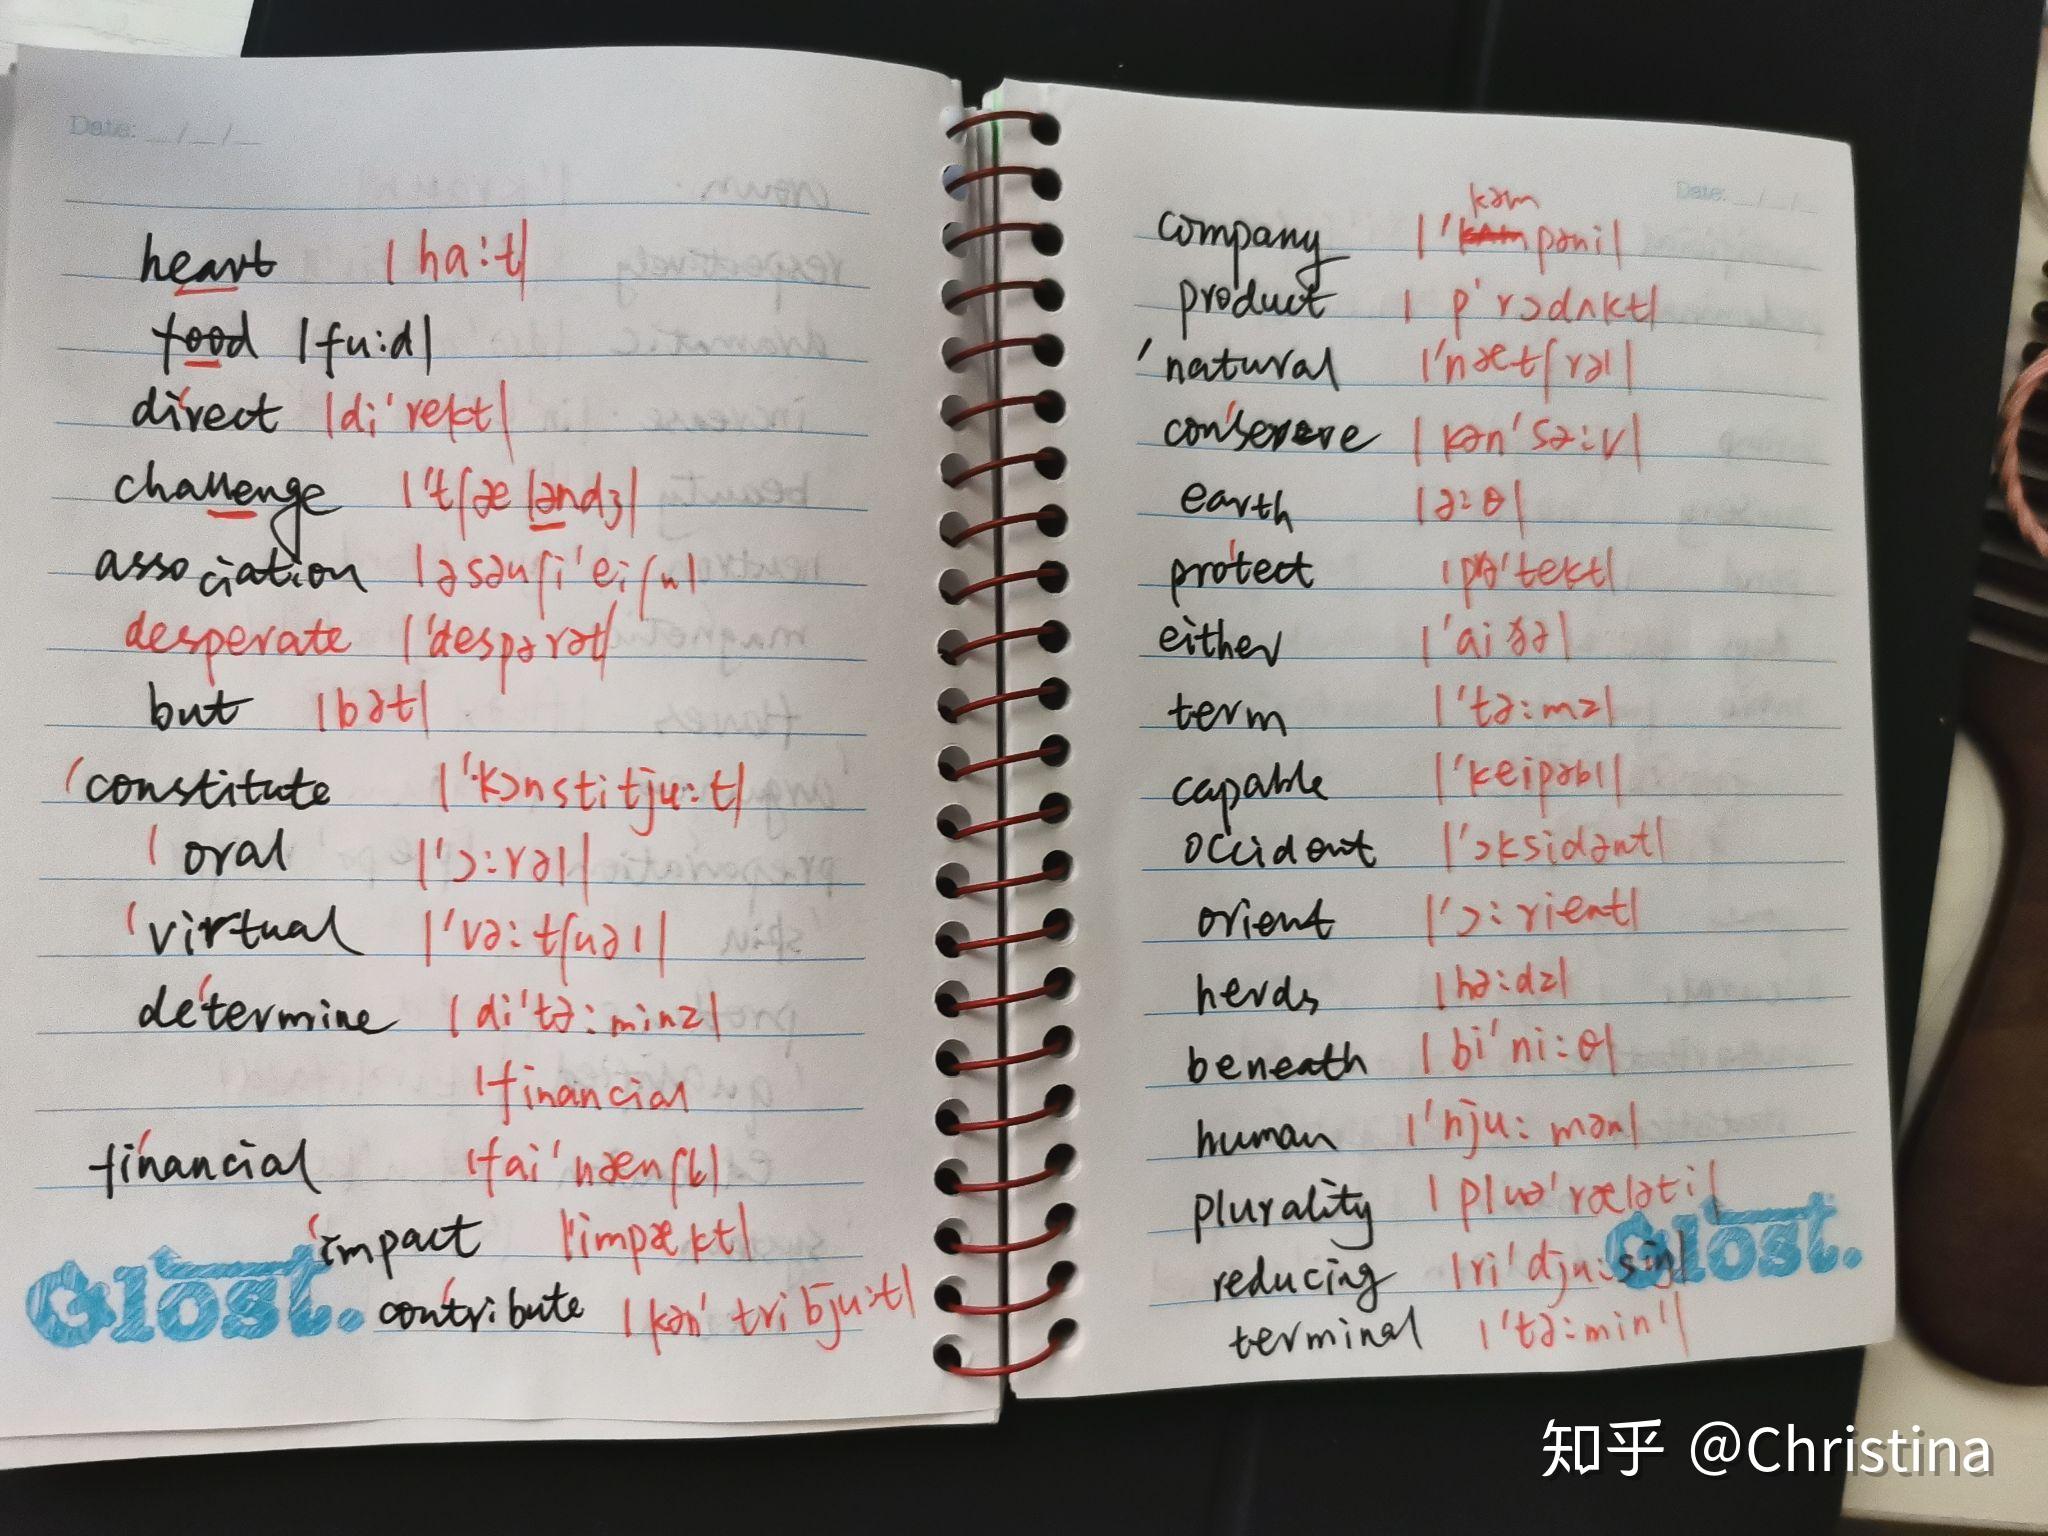 Date: __/__/__
heart |ha:t|
food |fu:d|
di'rect |di'rekt|
challenge |'tʃæləndʒ|
association |əsəuʃi'eiʃn|
desperate |'despərət|
but |bət|
'constitute |'kɔnstitju:t|
'oral |'ɔ:rəl|
'virtual |'və:tʃuəl|
de'termine |di'tə:minz|
'financial
fi'nancial |fai'nænʃl|
'impact |'impækt|
con'tribute |kən'tribju:t|
Glost.
Date: __/__/__
kəm
company |'kʌmpəni|
product |p'rɔdʌkt|
'natural |'nætʃrəl|
con'serve |kən'sə:v|
earth |ə:θ|
pro'tect |pə'tekt|
either |'aiðə|
term |'tə:mz|
capable |'keipəbl|
occident |'ɔksidənt|
orient |'ɔ:rient|
herds |hə:dz|
beneath |bi'ni:θ|
human |'hju:mən|
plurality |pluə'ræləti|
reducing |ri'dju:siŋ|
Glost.
terminal |'tə:min'l|
知乎 @Christina